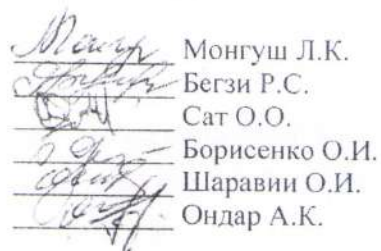 Монгуш Л.К.
Бегзи Р.С.
Сат О.О.
Борисенко О.И.
Шаравии О.И.
Ондар А.К.